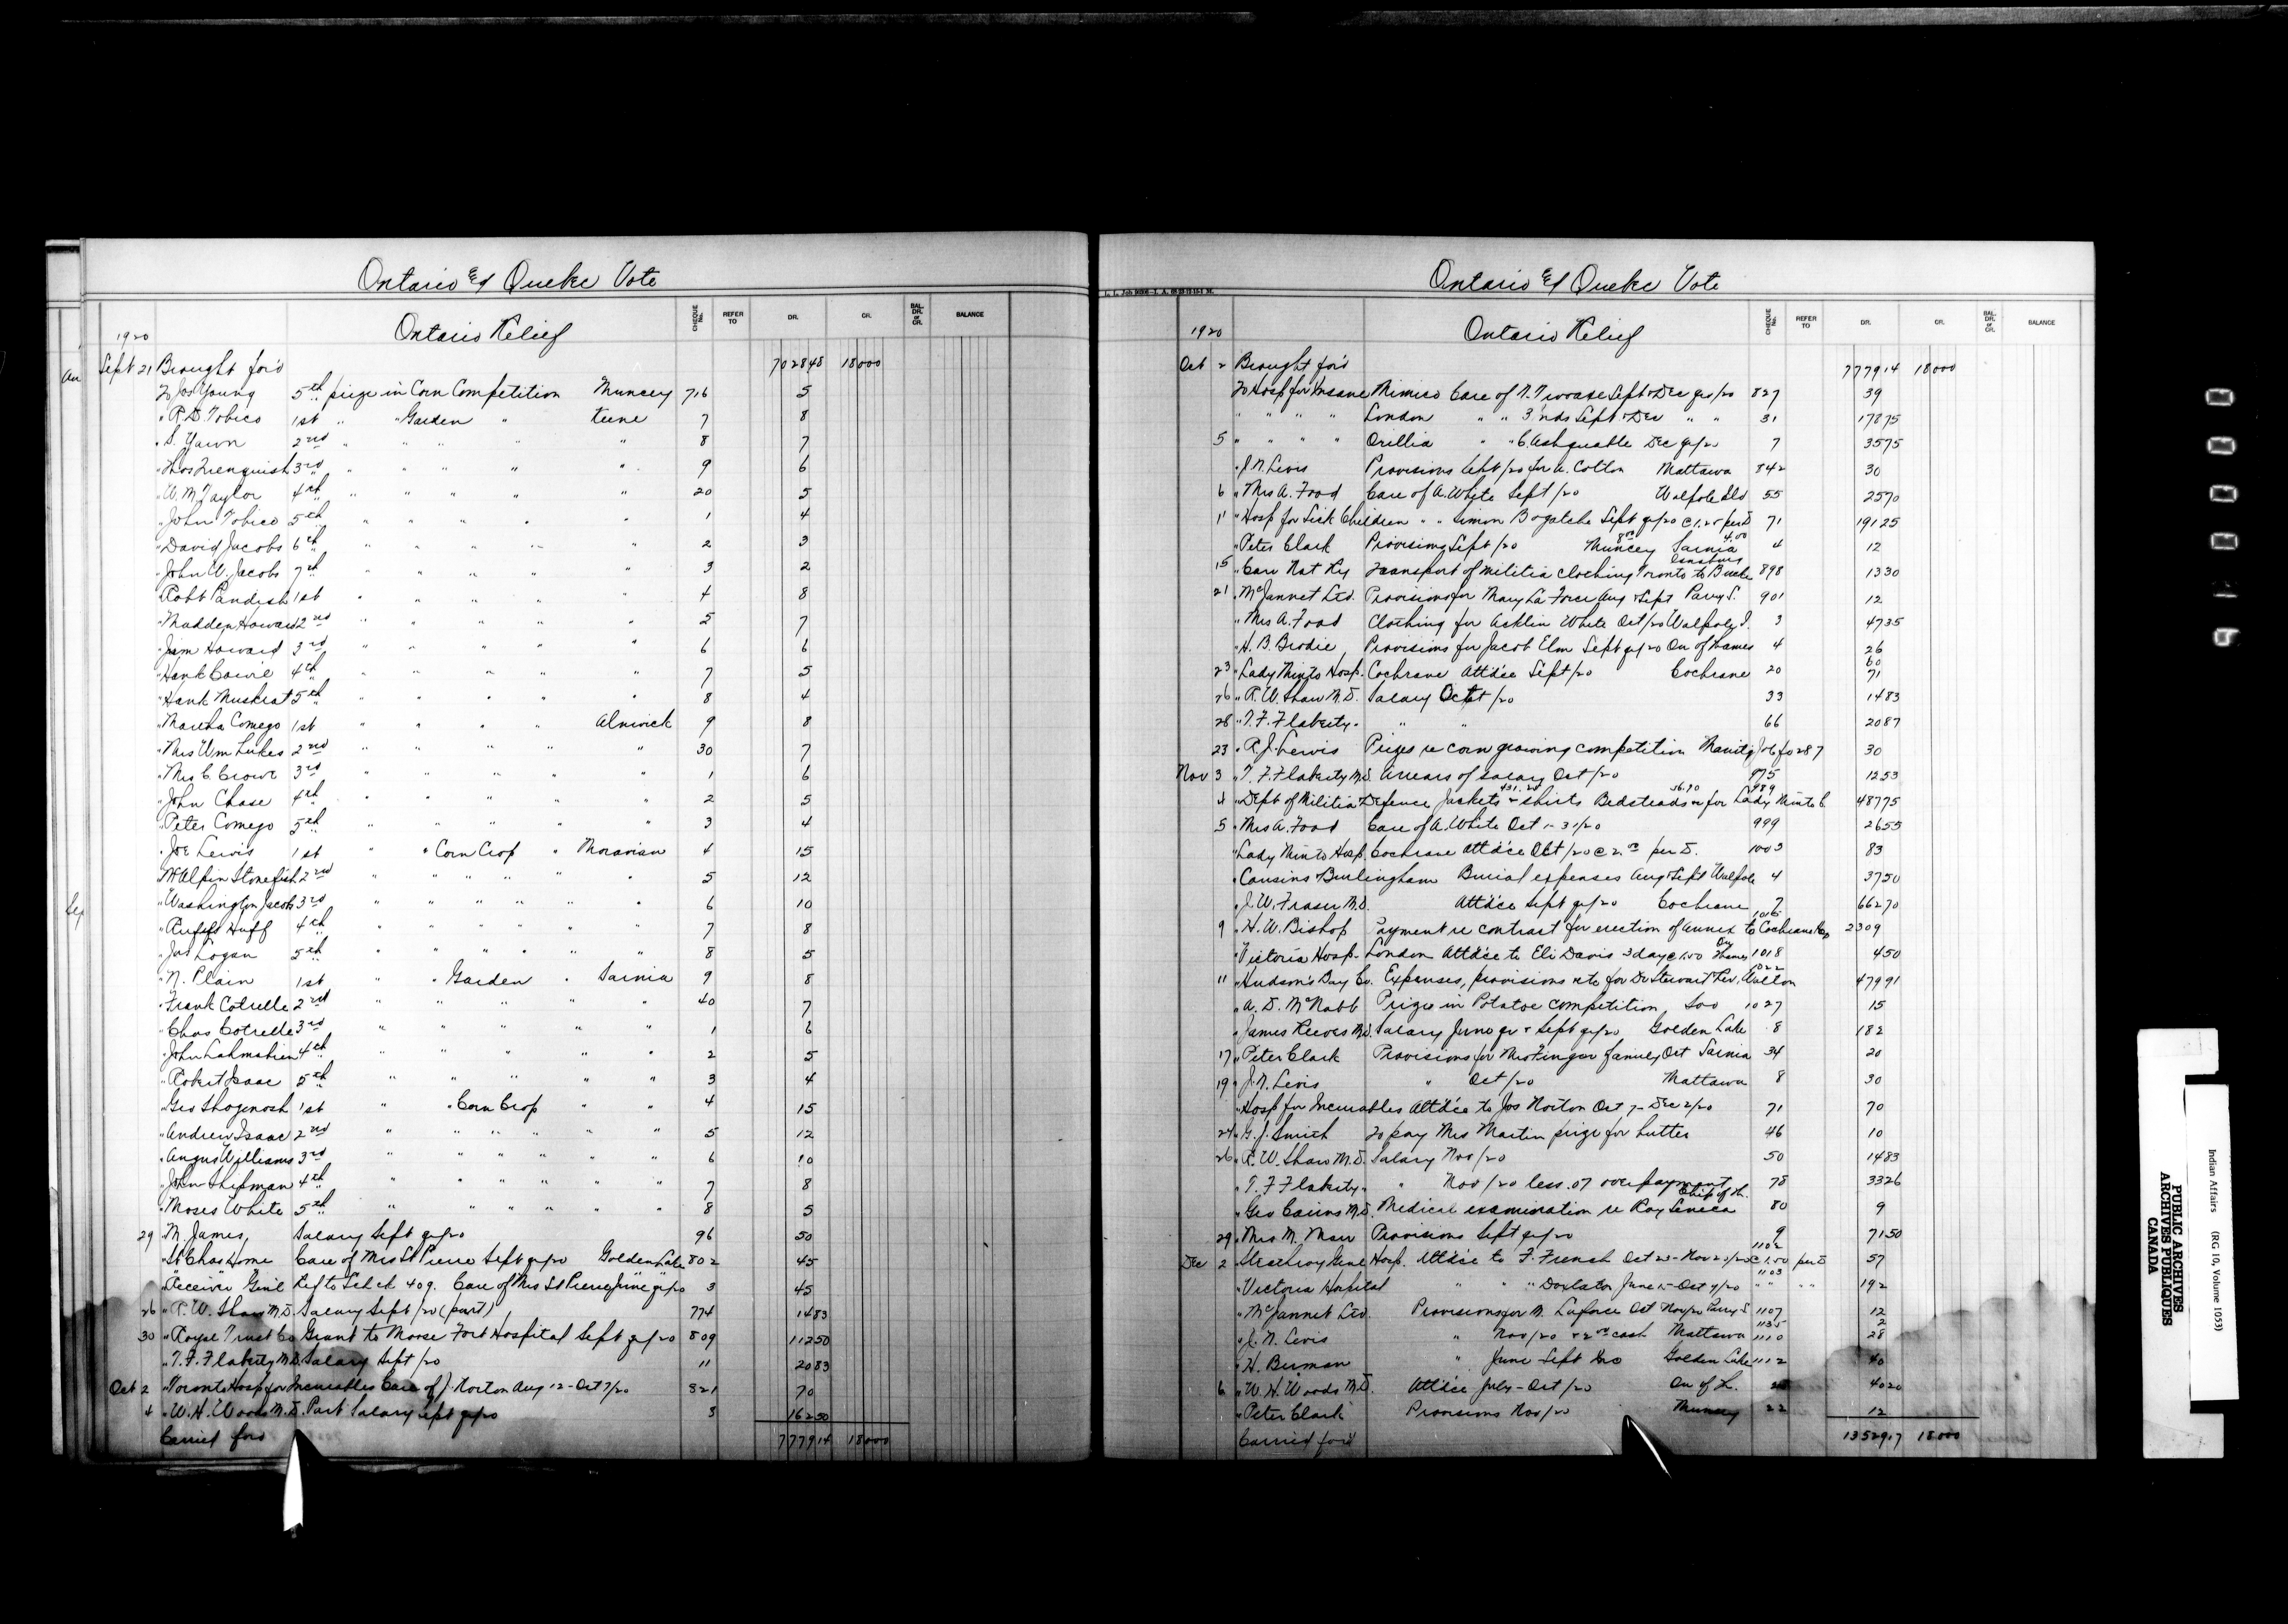 Ontario & Quebec Vote
CHEQUE No. REFER TO DR. CR. BAL. DR. or CR. BALANCE
1920 Ontario Relief
Sept 21 Brought for'd 7028 48 180 00
To Jos Young 5th prize in Corn Competition Muncey 716 5
" R.D. Tobico 1st " " Garden " Keene 7 8
" S. Yawn 2nd " " " " " 8 7
" Thos 3rd " " " " 9 6
" W. M. Taylor 4th " " " " 20 5
" John Tobico 5th " " " " 1 4
" David Jacobs 6th " " " " 2 3
" John W. Jacobs 7th " " " " 3 2
" Robt Pandish 1st " " " " 4 8
" Madden Howard 2nd " " " " 5 7
" Jim Howard 3rd " " " " 6 6
" Hank Cowie 4th " " " " 7 5
" Hank Muskrat 5th " " " " 8 4
" Martha Comego 1st " " " " Alnwick 9 8
" Mrs Wm Lukes 2nd " " " " " 30 7
" Mrs C. Crowe 3rd " " " " " 1 6
" John Chase 4th " " " " " 2 5
" Peter Comego 5th " " " " " 3 4
" Joe Lewis 1st " " Corn Crop " Moravian 4 15
" McAlpin Stonefish 2nd " " " " " " 5 12
" Washington Jacobs 3rd " " " " " " 6 10
" Huff 4th " " " " " " 7 8
" Jas Logan 5th " " " " " " 8 5
" N. Plain 1st " " Garden " Sarnia 9 8
" Frank Cotrelle 2nd " " " " " 40 7
" Chas Cotrelle 3rd " " " " " 1 6
" John 4th " " " " " 2 5
" Robert Isaac 5th " " " " " 3 4
" Geo Shaginosh 1st " " Corn Crop " " 4 15
" Andrew Isaac 2nd " " " " " " 5 12
" Angus Williams 3rd " " " " " " 6 10
" John Shipman 4th " " " " " " 7 8
" Moses White 5th " " " " " " 8 5
29 " M. James, Salary Sept qr/20 96 50
" St Chas Home Care of Mrs St Pierre Sept qr/20 Golden Lake 802 45
" Receiver Gen'l Ref to Ch 409. Care of Mrs St Pierre June qr/20 3 45
26 " R. W. Shaw M.D. Salary Sept/20 (part) 774 14 83
30 " Royal Trust Co Grant to Moose Fort Hospital Sept qr/20 809 112 50
" T. F. Flaherty M.D. Salary Sept/20 11 20 83
Oct 2 " Toronto Hosp for Incurables Care of J. Norton Aug 12 - Oct 7/20 821 70
4 " W. H. Woods M.D. Part Salary Sept qr/20 3 162 50
Carried for'd 7779 14 180 00
Ontario & Quebec Vote
CHEQUE No. REFER TO DR. CR. BAL. DR. or CR. BALANCE
1920 Ontario Relief
Oct 2 Brought for'd 7779 14 180 00
To Hosp for Insane Mimico Care of N. Sept & Dec qrs/20 827 39
" " " " London " " 3 Inds Sept & Dec " " 31 178 75
5 " " " " Orillia " " C. Ashquabe Dec qr/20 7 35 75
" J. N. Levis Provisions Sept/20 for A. Cotton Mattawa 842 30
6 " Mrs A. Food Care of A. White Sept/20 Walpole Isld 55 25 70
11 " Hosp for Sick Children " " Simon Bogatche Sept qr/20 @ 1.25 per D. 71 191 25
" Peter Clark Provisions Sept/20 8.00 Muncey Sarnia 4.00 4 12
15 " Can Nat Ry Transport of militia clothing Toronto to 898 13 30
21 " McJannet Ltd. Provisions for Mary La Force Aug & Sept Parry S. 901 12
" Mrs A. Food Clothing for White Oct/20 Walpole I. 3 47 35
" H. B. Brodie, Provisions for Jacob Elm Sept qr/20 On of Thames 4 26
23 " Lady Minto Hosp. Cochrane Attd'ce Sept/20 Cochrane 20 71
26 " R. W. Shaw M.D. Salary Oct/20 33 14 83
28 " T. F. Flaherty " " " 66 20 87
23 " R. J. Lewis Prizes re corn growing competition 287 30
Nov 3 " T. F. Flaherty M.D. Arrears of salary Oct/20 975 12 53
4 " Dept of Militia & Defence Jackets & shirts 431.25 Bedsteads 56.50 for Lady Minto 989 487 75
5 " Mrs A. Food Care of A. White Oct 1-31/20 999 26 55
" Lady Minto Hosp. Cochrane Attd'ce Oct/20 @ 2.00 per D. 1003 83
" Cousins Burlingham Burial expenses Aug & Sept Walpole 4 37 50
" J. W. Fraser M.D. Attd'ce Sept qr/20 Cochrane 7 662 70
9 " H. W. Bishop Payment re contract for erection of annex to Cochrane Hosp 1015 2309
" Victoria Hosp. London Attd'ce to Eli Davis 3 days @ 1.50 On Thames 1018 4 50
11 " Hudson's Bay Co. Expenses, provisions etc for Dr Stewart Rev. Walton 1022 479 91
" A. D. McNabb Prizes in Potatoe competition, Soo 1027 15
" James Reeves M.D. Salary June qr & Sept qr/20 Golden Lake 8 182
17 " Peter Clark Provisions for Mrs Finger family Oct Sarnia 34 20
19 " J. N. Levis " Oct/20 Mattawa 8 30
" Hosp for Incurables Attd'ce to Jos Norton Oct 7 - Dec 2/20 71 70
24 " G. J. Smith To pay Mrs Martin prize for butter 46 10
26 " R. W. Shaw M.D. Salary Nov/20 50 14 83
" T. F. Flaherty " " Nov/20 less .07 overpayment 78 33 26
" Geo Cairns M.D. Medical examination re Roy Seneca Chip of Th. 80 9
29 " Mrs M. Marr Provisions Sept qr/20 9 71 50
Dec 2 " Strathroy Genl Hosp. Attd'ce to F. French Oct 23 - Nov 20/20 @ 1.50 per D 1102 57
" Victoria Hospital " " " Doxtator June 15 - Oct 7/20 " " " " 1103 192
" McJannet Ltd. Provisions for M. Laforce Oct Nov/20 Parry S. 1107 12
" J. N. Levis " Nov/20 & 2.00 cash Mattawa 1135 1110 2 28
" H. Berman " June Sept Golden Lake 1112 40
6 " W. H. Woods M.D. Attd'ce July - Oct/20 On of Th. 40 20
" Peter Clark Provisions Nov/20 Muncey 22 12
Carried for'd 13529 17 180 00
9 1 0 0 0 0
Indian Affairs (RG 10, Volume 1053)
PUBLIC ARCHIVES
ARCHIVES PUBLIQUES
CANADA